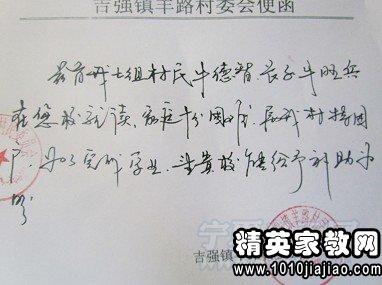 吉强镇羊路村委会便函
兹有我七组村民牛德智长子牛旺兵
在您校就读，家庭十分困难，属我村特困
户，
学业，望贵校能给予补助为
吉强镇
精英家教网
www.1010jiajiao.com